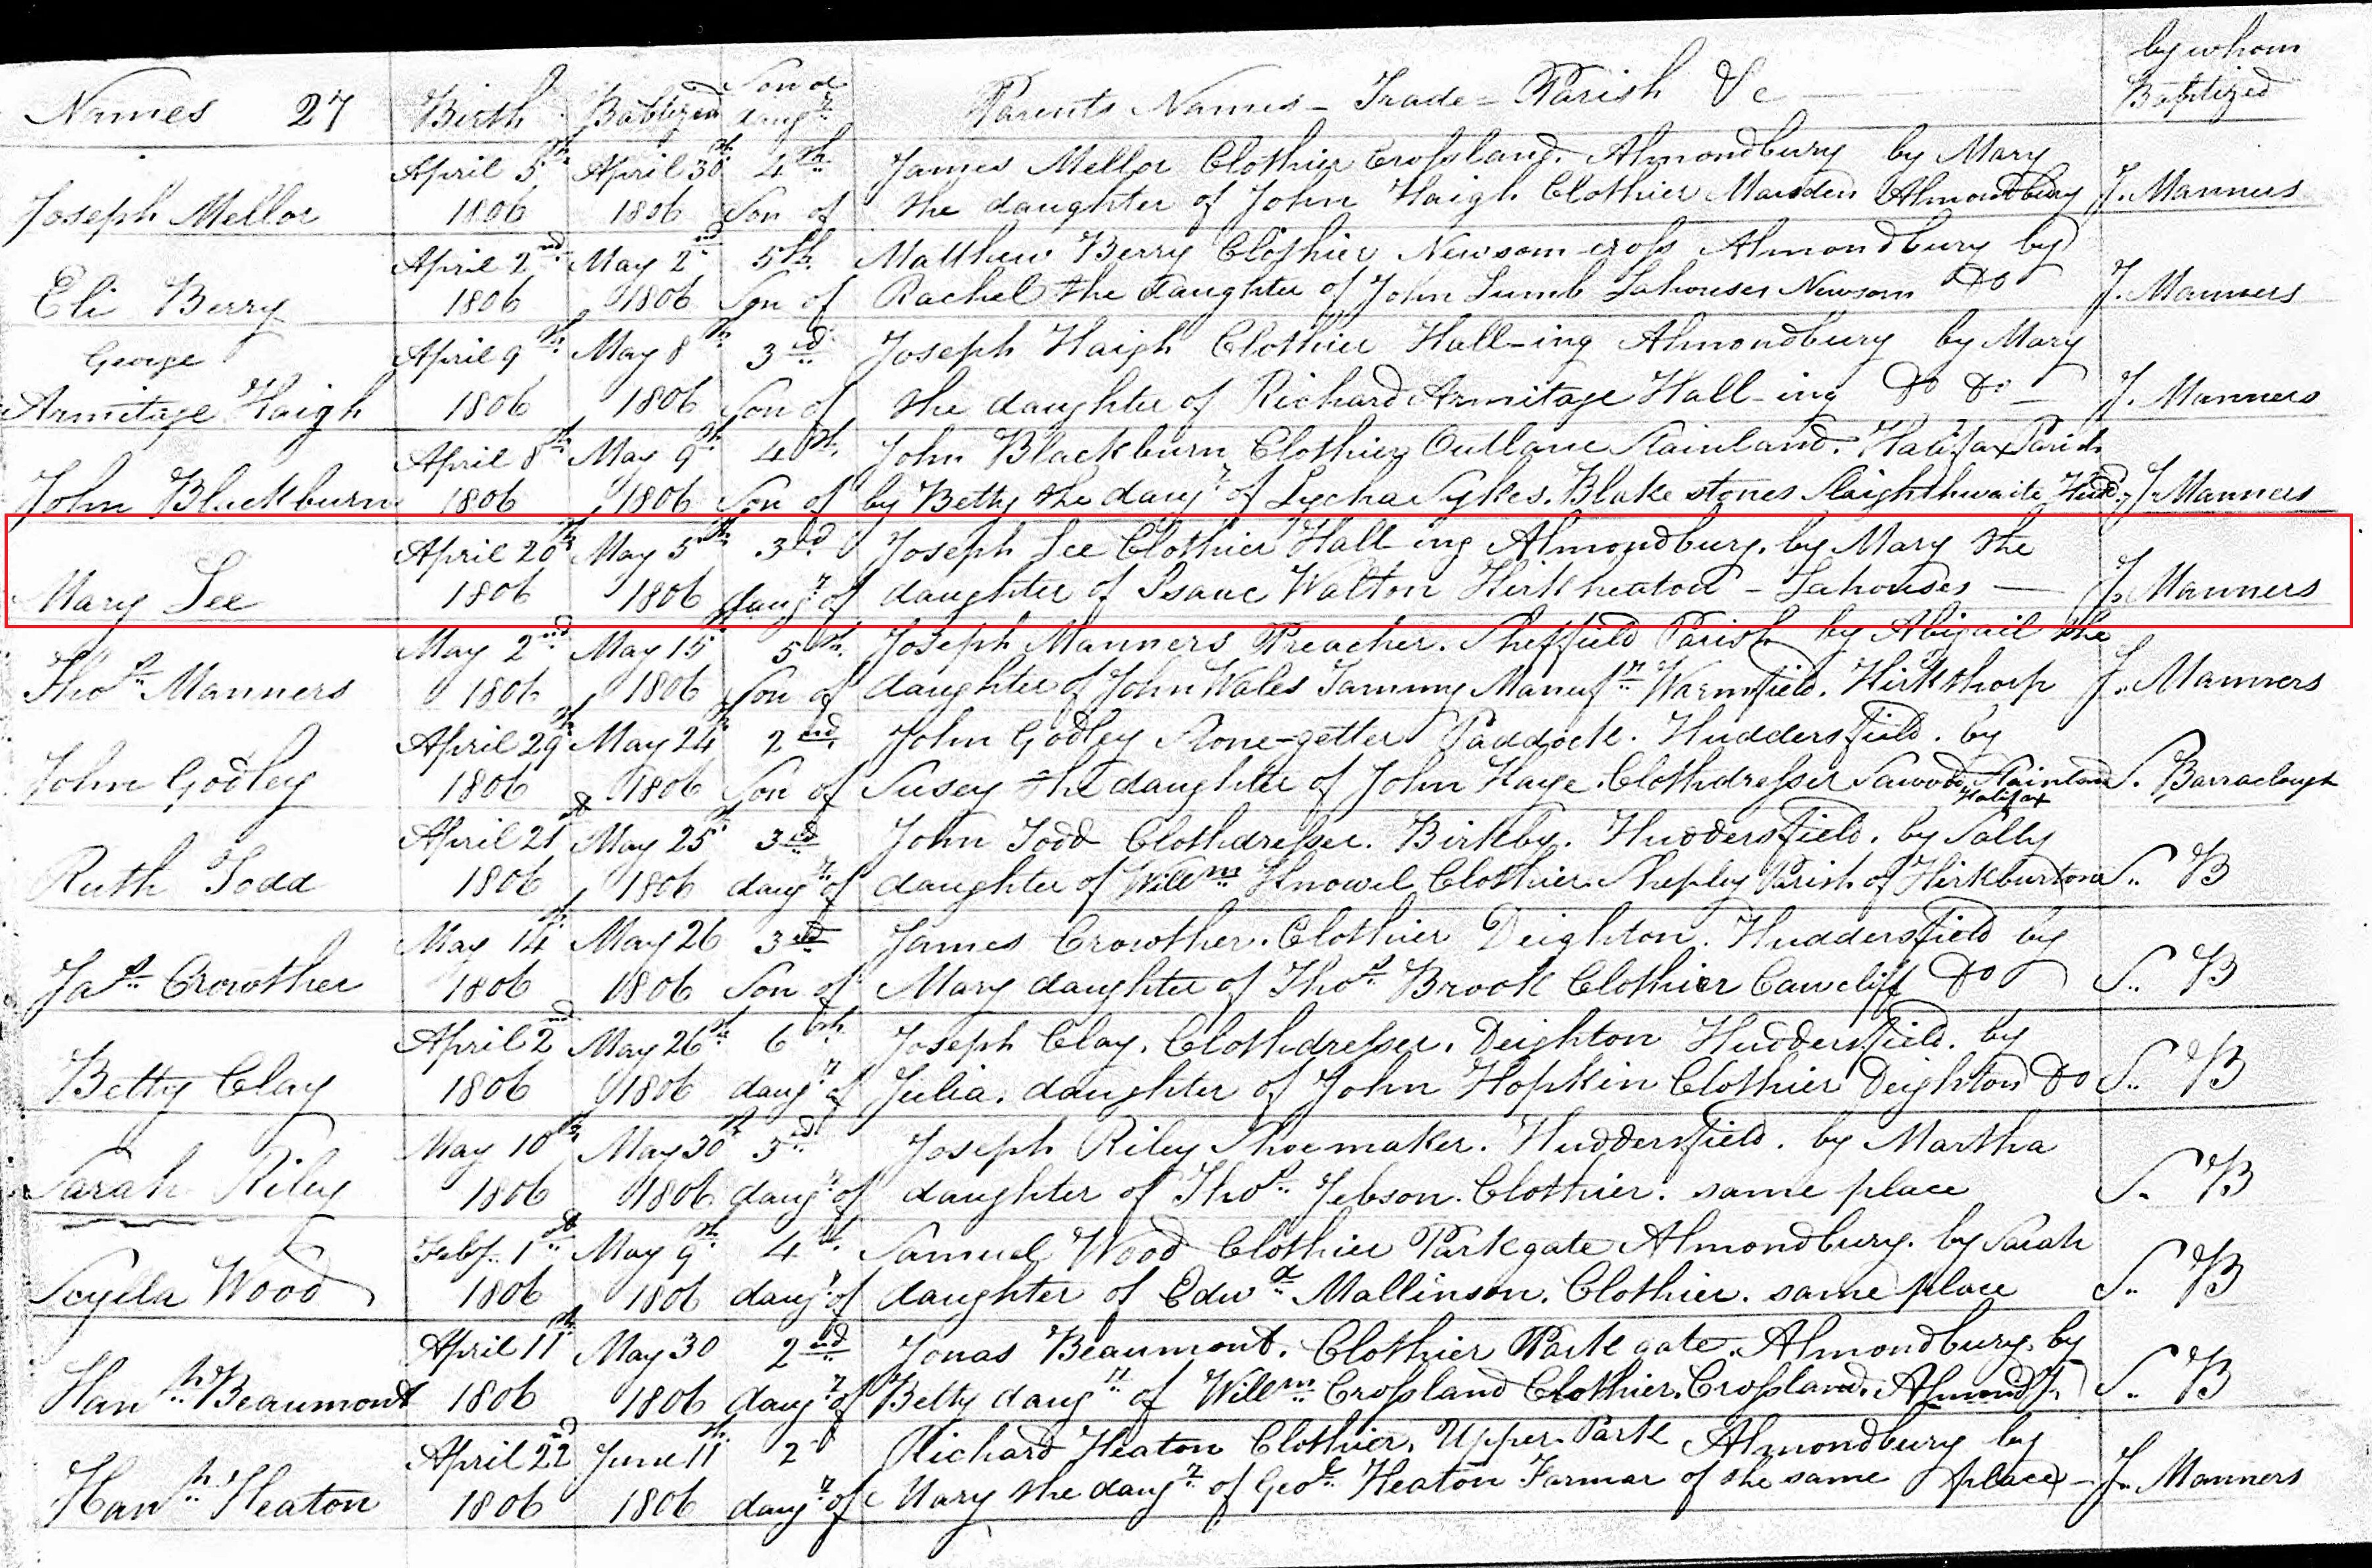 Names 27 Birth Babtized Son or daugr Parents Names - Trade - Parish &c by whom Baptized
April 5th April 30th 4th James Mellor Clothier Crosland. Almondbury by Mary
Joseph Mellor 1806 1806 Son of the daughter of John Haigh Clothier Marsden Almondbury J. Manners
April 2nd May 2nd 5th Matthew Berry Clothier Newsom-cross Almondbury by
Eli Berry 1806 1806 Son of Rachel the daughter of John Lumb Lahouses Newsom Do J. Manners
George April 9th May 8th 3rd Joseph Haigh Clothier Hall-ing Almondbury by Mary
Armitage Haigh 1806 1806 Son of the daughter of Richard Armitage Hall-ing Do Do J. Manners
April 8th May 9th 4th John Blackburn Clothier Outlane Stainland. Halifax Parish
John Blackburn 1806 1806 Son of by Betty the daugr of Sykes. Blake stones Slaighthwaite Hudd. J. Manners
April 20th May 5th 3rd Joseph Lee Clothier Hall ing Almondbury. by Mary the
Mary Lee 1806 1806 daugr of daughter of Isaac Walton Kirkheaton - Lahouses — J. Manners
May 2nd May 15 5th Joseph Manners Preacher. Sheffield Parish by Abigail the
Thos Manners 1806 1806 Son of daughter of John Wales Tammy Manufr Warmfield. Kirkthorp J. Manners
April 29th May 24th 2nd John Godley Stone-getter Paddock. Huddersfield. by
John Godley 1806 1806 Son of Susey the daughter of John Haye. Clothdresser Sawood Stainland Halifax S. Barraclough
April 21st May 25th 3rd John Todd Clothdresser. Birkby. Huddersfield. by Sally
Ruth Todd 1806 1806 daugr of daughter of Willm Knowel Clothier. Shepley Parish of Kirkburton S. B
May 14th May 26 3rd James Crowther. Clothier Deighton. Huddersfield by
Jas Crowther 1806 1806 Son of Mary daughter of Thos Brook Clothier Cawcliff Do S. B
April 2nd May 26th 6th Joseph Clay. Clothdresser. Deighton Huddersfield. by
Betty Clay 1806 1806 daugr of Julia. daughter of John Hopkin Clothier Deighton Do S. B
May 10th May 30th 3rd Joseph Riley Shoemaker. Huddersfield. by Martha
Sarah Riley 1806 1806 daugr of daughter of Thos Jebson. Clothier. same place S. B
Feby. 1st May 9th 4th Samuel Wood Clothier Parkgate Almondbury. by Sarah
Scylla Wood 1806 1806 daugr of daughter of Edwd Mallinson. Clothier. same place S. B
April 11th May 30 2nd Jonas Beaumont. Clothier Park gate. Almondbury. by
Hanh Beaumont 1806 1806 daugr of Betty daugr of Willm Crosland Clothier. Crosland. Almondy. S. B
April 22nd June 11th 2d Richard Heaton Clothier. Upper Park Almondbury by
Hanh Heaton 1806 1806 daugr of Mary the daugr of Geoe Heaton Farmar of the same place - J. Manners